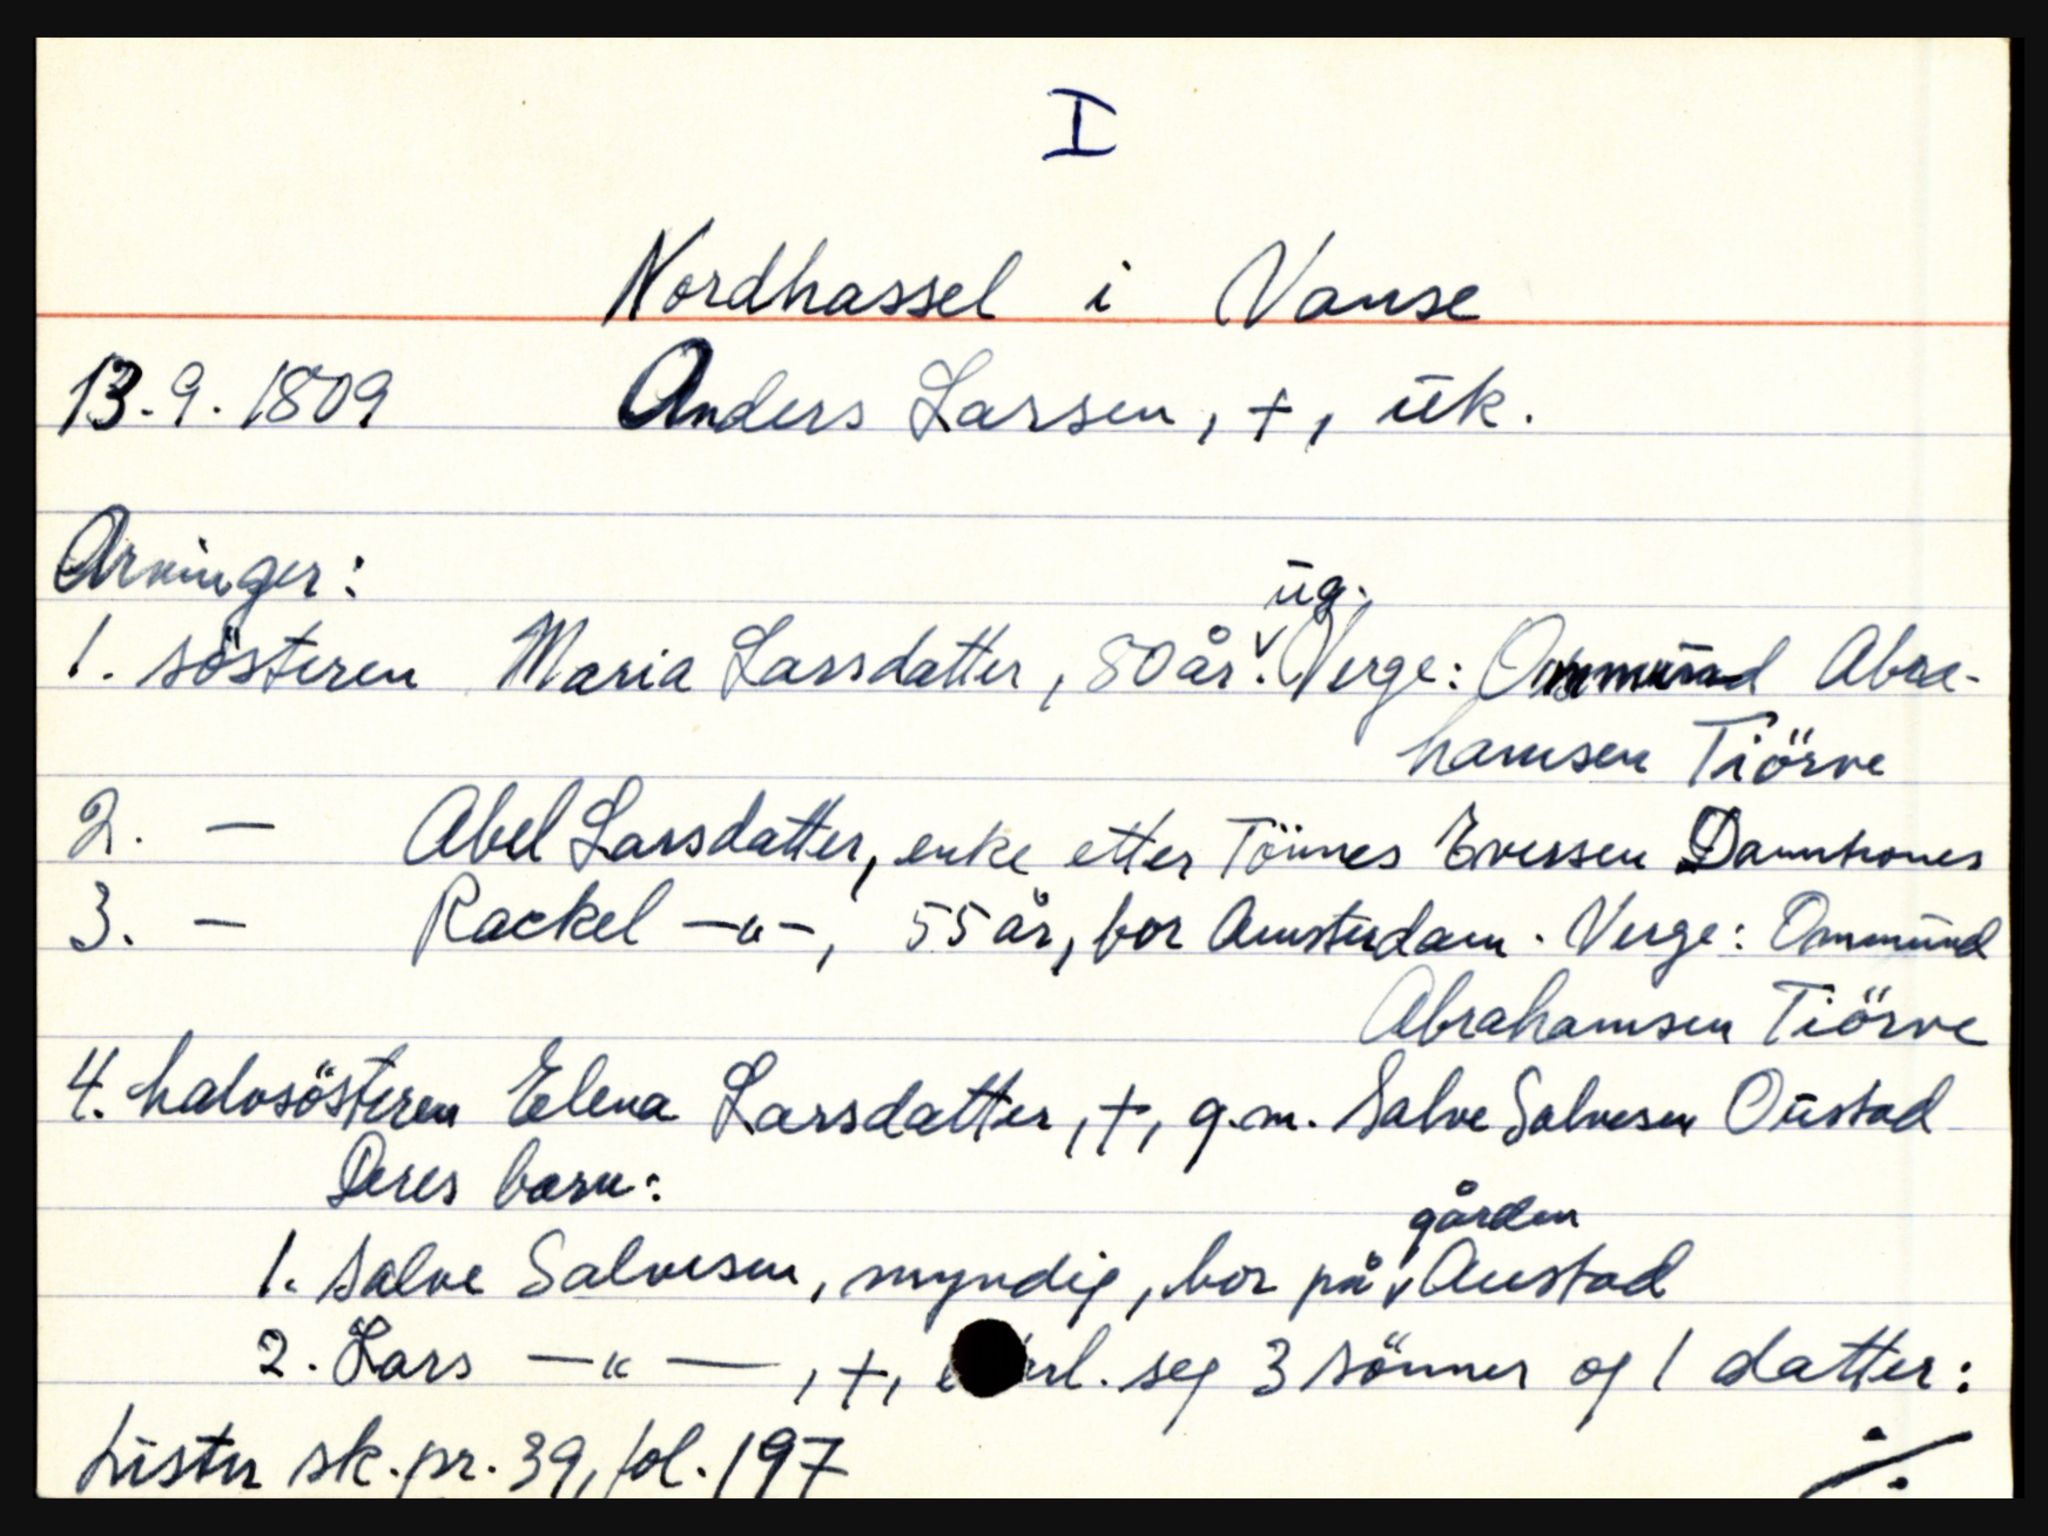 I
Nordhassel i Vanse
13.9.1809 Anders Larsen, +, uk.
Arvinger:
1. søsteren Maria Larsdatter, 80 år. ug. Verge: Ommund Abra-
hamsen Tiörve
2. — Abel Larsdatter, enke etter Tönnes Eversen
3. — Rackel —"—, 55 år, bor Amsterdam. Verge: Ommund
Abrahamsen Tiörve
4. halvsösteren Elena Larsdatter, +, g.m. Salve Salvesen Oustad
Deres barn:
1. Salve Salvesen, myndig, bor på gården Austad
2. Lars —"—, +, seg 3 sönner og 1 datter:
Lister sk.pr. 39, fol. 197 ./.